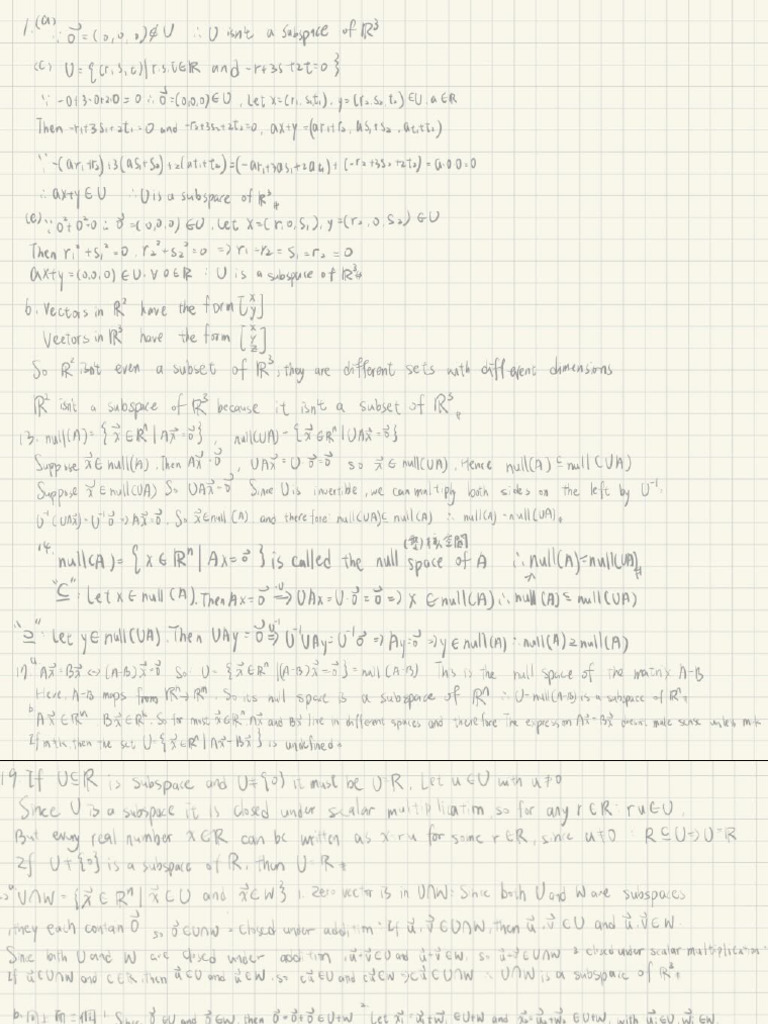 1.(a) ∵ 0⃗=(0,0,0)∉U ∴ U isn't a subspace of ℝ³
(c) U={(r,s,t)|r.s.t∈ℝ and -r+3s+2t=0}
∵ -0+3·0+2·0=0 ∴ 0⃗=(0,0,0)∈U, Let x=(r₁,s₁,t₁), y=(r₂,s₂,t₂)∈U, a∈ℝ
Then -r₁+3s₁+2t₁=0 and -r₂+3s₂+2t₂=0, ax+y=(ar₁+r₂, as₁+s₂, at₁+t₂)
∵ -(ar₁+r₂)+3(as₁+s₂)+2(at₁+t₂)=(-ar₁+3as₁+2at₁)+(-r₂+3s₂+2t₂)=a·0+0=0
∴ ax+y∈U ∴ U is a subspace of ℝ³
(e) ∵ 0²+0²=0 ∴ 0⃗=(0,0,0)∈U, Let x=(r₁,0,s₁), y=(r₂,0,s₂)∈U
Then r₁²+s₁²=0, r₂²+s₂²=0 ⇒ r₁=r₂=s₁=r₂=0
ax+y=(0,0,0)∈U, ∀ a∈ℝ ∴ U is a subspace of ℝ³
6. Vectors in ℝ² have the form [x y]
Vectors in ℝ³ have the form [x y z]
So ℝ² isn't even a subset of ℝ³, they are different sets with different dimensions
ℝ² isn't a subspace of ℝ³ because it isn't a subset of ℝ³
13. null(A)={x⃗∈ℝⁿ|Ax⃗=0⃗}, null(UA)={x⃗∈ℝⁿ|UAx⃗=0⃗}
Suppose x⃗∈null(A). Then Ax⃗=0⃗, UAx⃗=U0⃗=0⃗ so x⃗∈null(UA). Hence null(A)⊆null(UA)
Suppose x⃗∈null(UA) So UAx⃗=0⃗ Since U is invertible, we can multiply both sides on the left by U⁻¹:
U⁻¹(UAx⃗)=U⁻¹0⃗ ⇒ Ax⃗=0⃗. So x⃗∈null(A) and therefore null(UA)⊆null(A) ∴ null(A)=null(UA)
14. null(A)={x∈ℝⁿ|Ax=0⃗} is called the null space of A ∴ null(A)=null(UA)
"⊆": Let x∈null(A). Then Ax=0⃗ ⇒ UAx=U·0⃗=0⃗ ⇒ x∈null(UA) ∴ null(A)⊆null(UA)
"⊇": Let y∈null(UA). Then UAy=0⃗ ⇒ U⁻¹UAy=U⁻¹0⃗ ⇒ Ay=0⃗ ⇒ y∈null(A) ∴ null(A)⊇null(UA)
17 a. Ax⃗=Bx⃗ ⇔ (A-B)x⃗=0⃗ So U={x⃗∈ℝⁿ|(A-B)x⃗=0⃗}=null(A-B) This is the null space of the matrix A-B
Here, A-B maps from ℝⁿ→ℝᵐ, So its null space is a subspace of ℝⁿ ∴ U=null(A-B) is a subspace of ℝⁿ
b. Ax⃗∈ℝᵐ Bx⃗∈ℝᵏ. So for most x⃗∈ℝⁿ Ax⃗ and Bx⃗ live in different spaces and therefore The expression Ax⃗=Bx⃗ doesn't make sense unless m=k
If m≠k, then the set U={x⃗∈ℝⁿ|Ax⃗=Bx⃗} is undefined.
19 If U⊆ℝ is subspace and U≠{0} it must be U=ℝ. Let u∈U with u≠0
Since U is a subspace it is closed under scalar multiplication, so for any r∈ℝ: ru∈U.
But every real number x∈ℝ can be written as x=ru for some r∈ℝ, since u≠0 ∴ ℝ⊆U ⇒ U=ℝ
If U≠{0} is a subspace of ℝ, then U=ℝ
a. U∩W={x⃗∈ℝⁿ|x⃗∈U and x⃗∈W} 1. Zero vector is in U∩W: Since both U and W are subspaces
they each contain 0⃗ so 0⃗∈U∩W closed under addition: if u⃗,v⃗∈U∩W, then u⃗,v⃗∈U and u⃗,v⃗∈W
Since both U and W are closed under addition, u⃗+v⃗∈U and u⃗+v⃗∈W, so u⃗+v⃗∈U∩W closed under scalar multiplication:
if u⃗∈U∩W and c∈ℝ, then u⃗∈U and u⃗∈W, so cu⃗∈U and cu⃗∈W ⇒ cu⃗∈U∩W ∴ U∩W is a subspace of ℝⁿ
Since 0⃗∈U and 0⃗∈W, then 0⃗=0⃗+0⃗∈U+W 2. Let